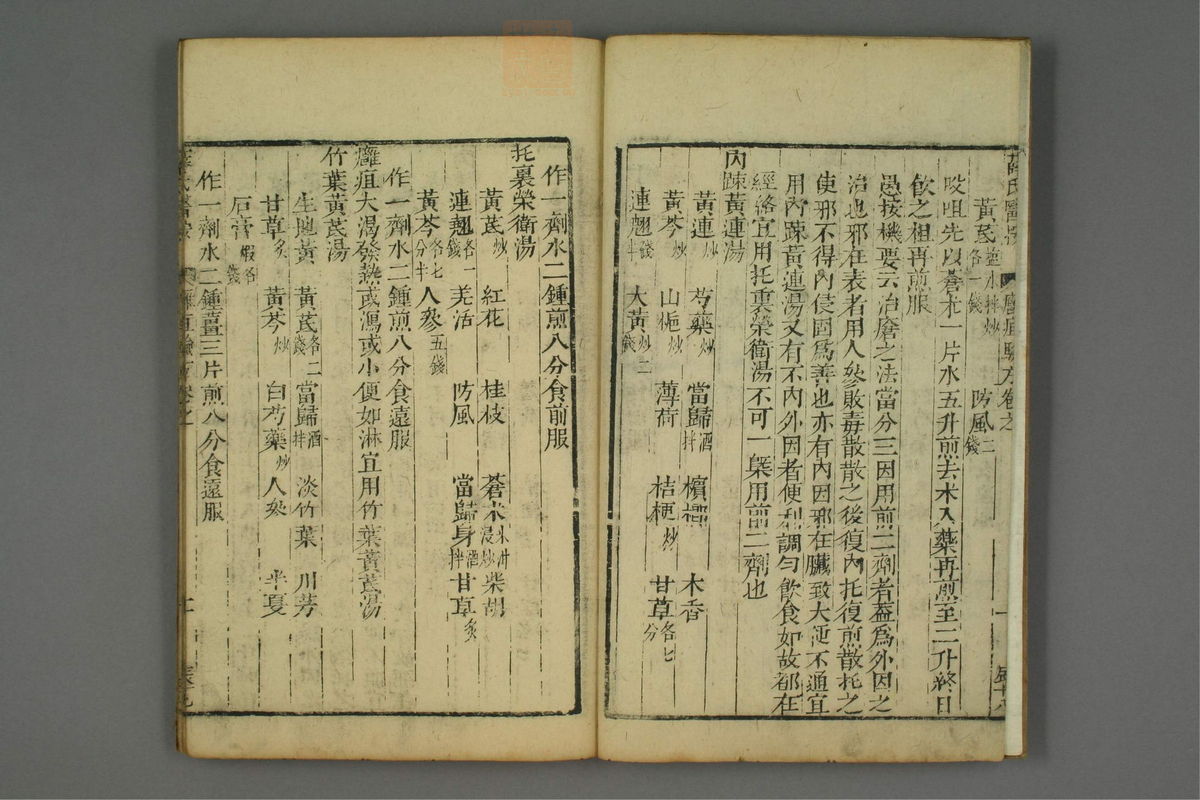 薛氏醫按 癰疽驗方卷之一
黃芪鹽水拌炒各一錢 防風二錢
㕮咀先以蒼朮一片水五升煎去朮入藥再煎至二升終日
飲之柤再煎服
愚按機要云治瘡之法當分三因用前二劑者蓋爲外因之
治也邪在表者用人參敗毒散散之後復內托復煎散托之
使邪不得內侵因爲善也亦有內因邪在臟致大便不通宜
用內疎黃連湯又有不內外因者便利調勻飲食如故邪在
經絡宜用托裏榮衛湯不可一槩用前二劑也
內疎黃連湯
黃連炒 芍藥炒 當歸酒拌 檳榔 木香
黃芩炒 山梔炒 薄荷 桔梗炒 甘草各七分
連翹一錢半 大黃炒二錢
作一劑水二鍾煎八分食前服
托裏榮衛湯
黃芪炒 紅花 桂枝 蒼朮米泔浸炒 柴胡
連翹各一錢 羌活 防風 當歸身酒拌 甘草炙
黃芩各七分半 人參五錢
作一劑水二鍾煎八分食遠服
癰疽大渴發熱或瀉或小便如淋宜用竹葉黃芪湯
竹葉黃芪湯
生地黃 黃芪各二錢 當歸酒拌 淡竹葉 川芎
甘草炙 黃芩炒 白芍藥炒 人參 半夏
石膏煅各一錢
作一劑水二鍾薑三片煎八分食遠服